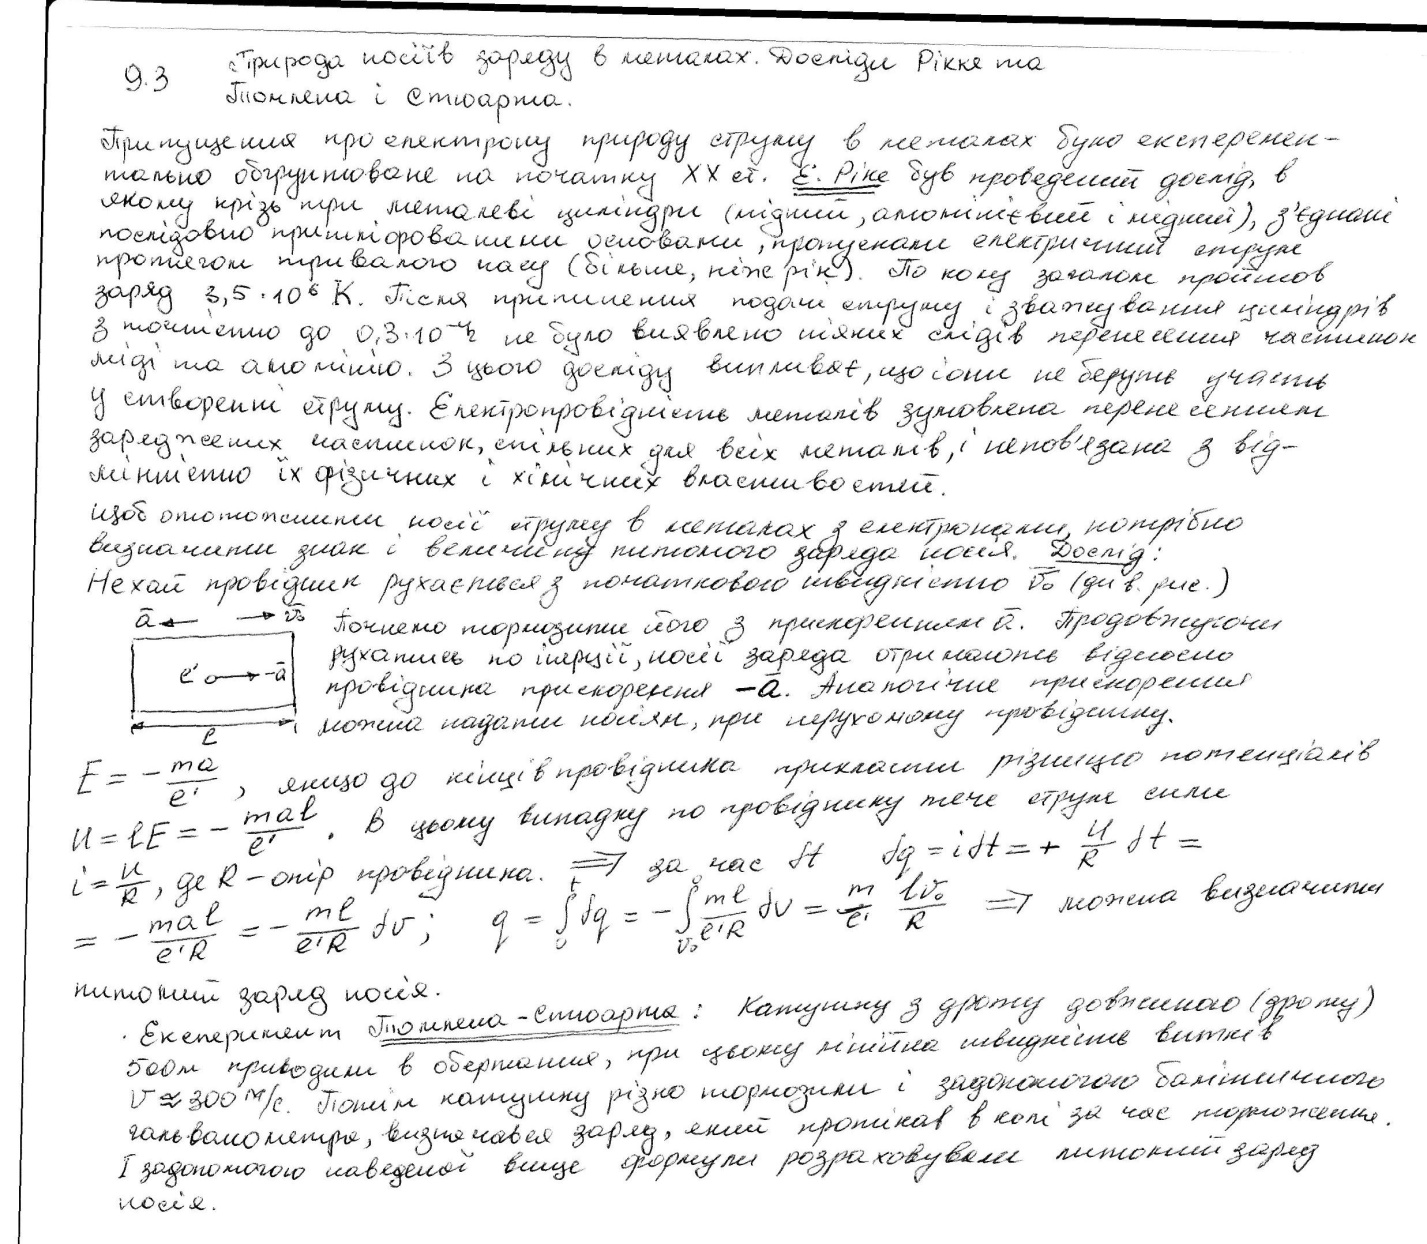 9.3 Природа носіїв заряду в металах. Досліди Рікке та
Толмена і Стюарта.
Припущення про електрону природу струму в металах було експеремен-
тально обгрунтоване на початку XX ст. Е. Ріке був проведений дослід, в
якому крізь три металеві циліндри (мідний, алюмінієвий і мідний), з'єднані
послідовно пришліфованими основами, пропускали електричний струм
протягом тривалого часу (більше, ніж рік). По колу загалом пройшов
заряд 3,5·10⁶ К. Після припинення подачі струму і зважування циліндрів
з точністю до 0,3·10⁻⁴г не було виявлено ніяких слідів перенесення частинок
міді та алюмінію. З цього досліду випливає, що іони не беруть участь
у створенні струму. Електропровідність металів зумовлена перенесенням
заряджених частинок, спільних для всіх металів, і непов'язана з від-
мінністю їх фізичних і хімічних властивостей.
Щоб ототожнити носії струму в металах з електронами, потрібно
визначити знак і величину питомого заряда носія. Дослід:
Нехай провідник рухається з початковою швидкістю v̄₀ (див. рис.)
ā ← → v̄₀ Почнемо тормозити його з прискоренням ā. Продовжуючи
рухатись по інерції, носії заряда отримають відносно
e' → -ā провідника прискорення -ā. Аналогічне прискорення
можна надати носіям, при нерухомому провіднику.
l
E = - ma/e' , якщо до кінців провідника прикласти різницю потенціалів
U = lE = - mal/e' . В цьому випадку по провіднику тече струм сили
i = U/R, де R - опір провідника. ⇒ за час dt dq = idt = + U/R dt =
= - mal/e'R = - ml/e'R dv; q = ∫₀ᵗ dq = - ∫_{v₀}^{0} ml/e'R dv = m/e' lv₀/R ⇒ можна визначити
питомий заряд носія.
· Експеримент Толмена-Стюарта: Катушку з дроту довжиною (дроту)
500м приводили в обертання, при цьому лінійна швидкість витків
v ≈ 300 м/с. Потім катушку різко тормозили і задопомогою балістичного
гальванометра, визначався заряд, який протікав в колі за час торможення.
І задопомогою наведеної вище формули розраховували питомий заряд
носія.